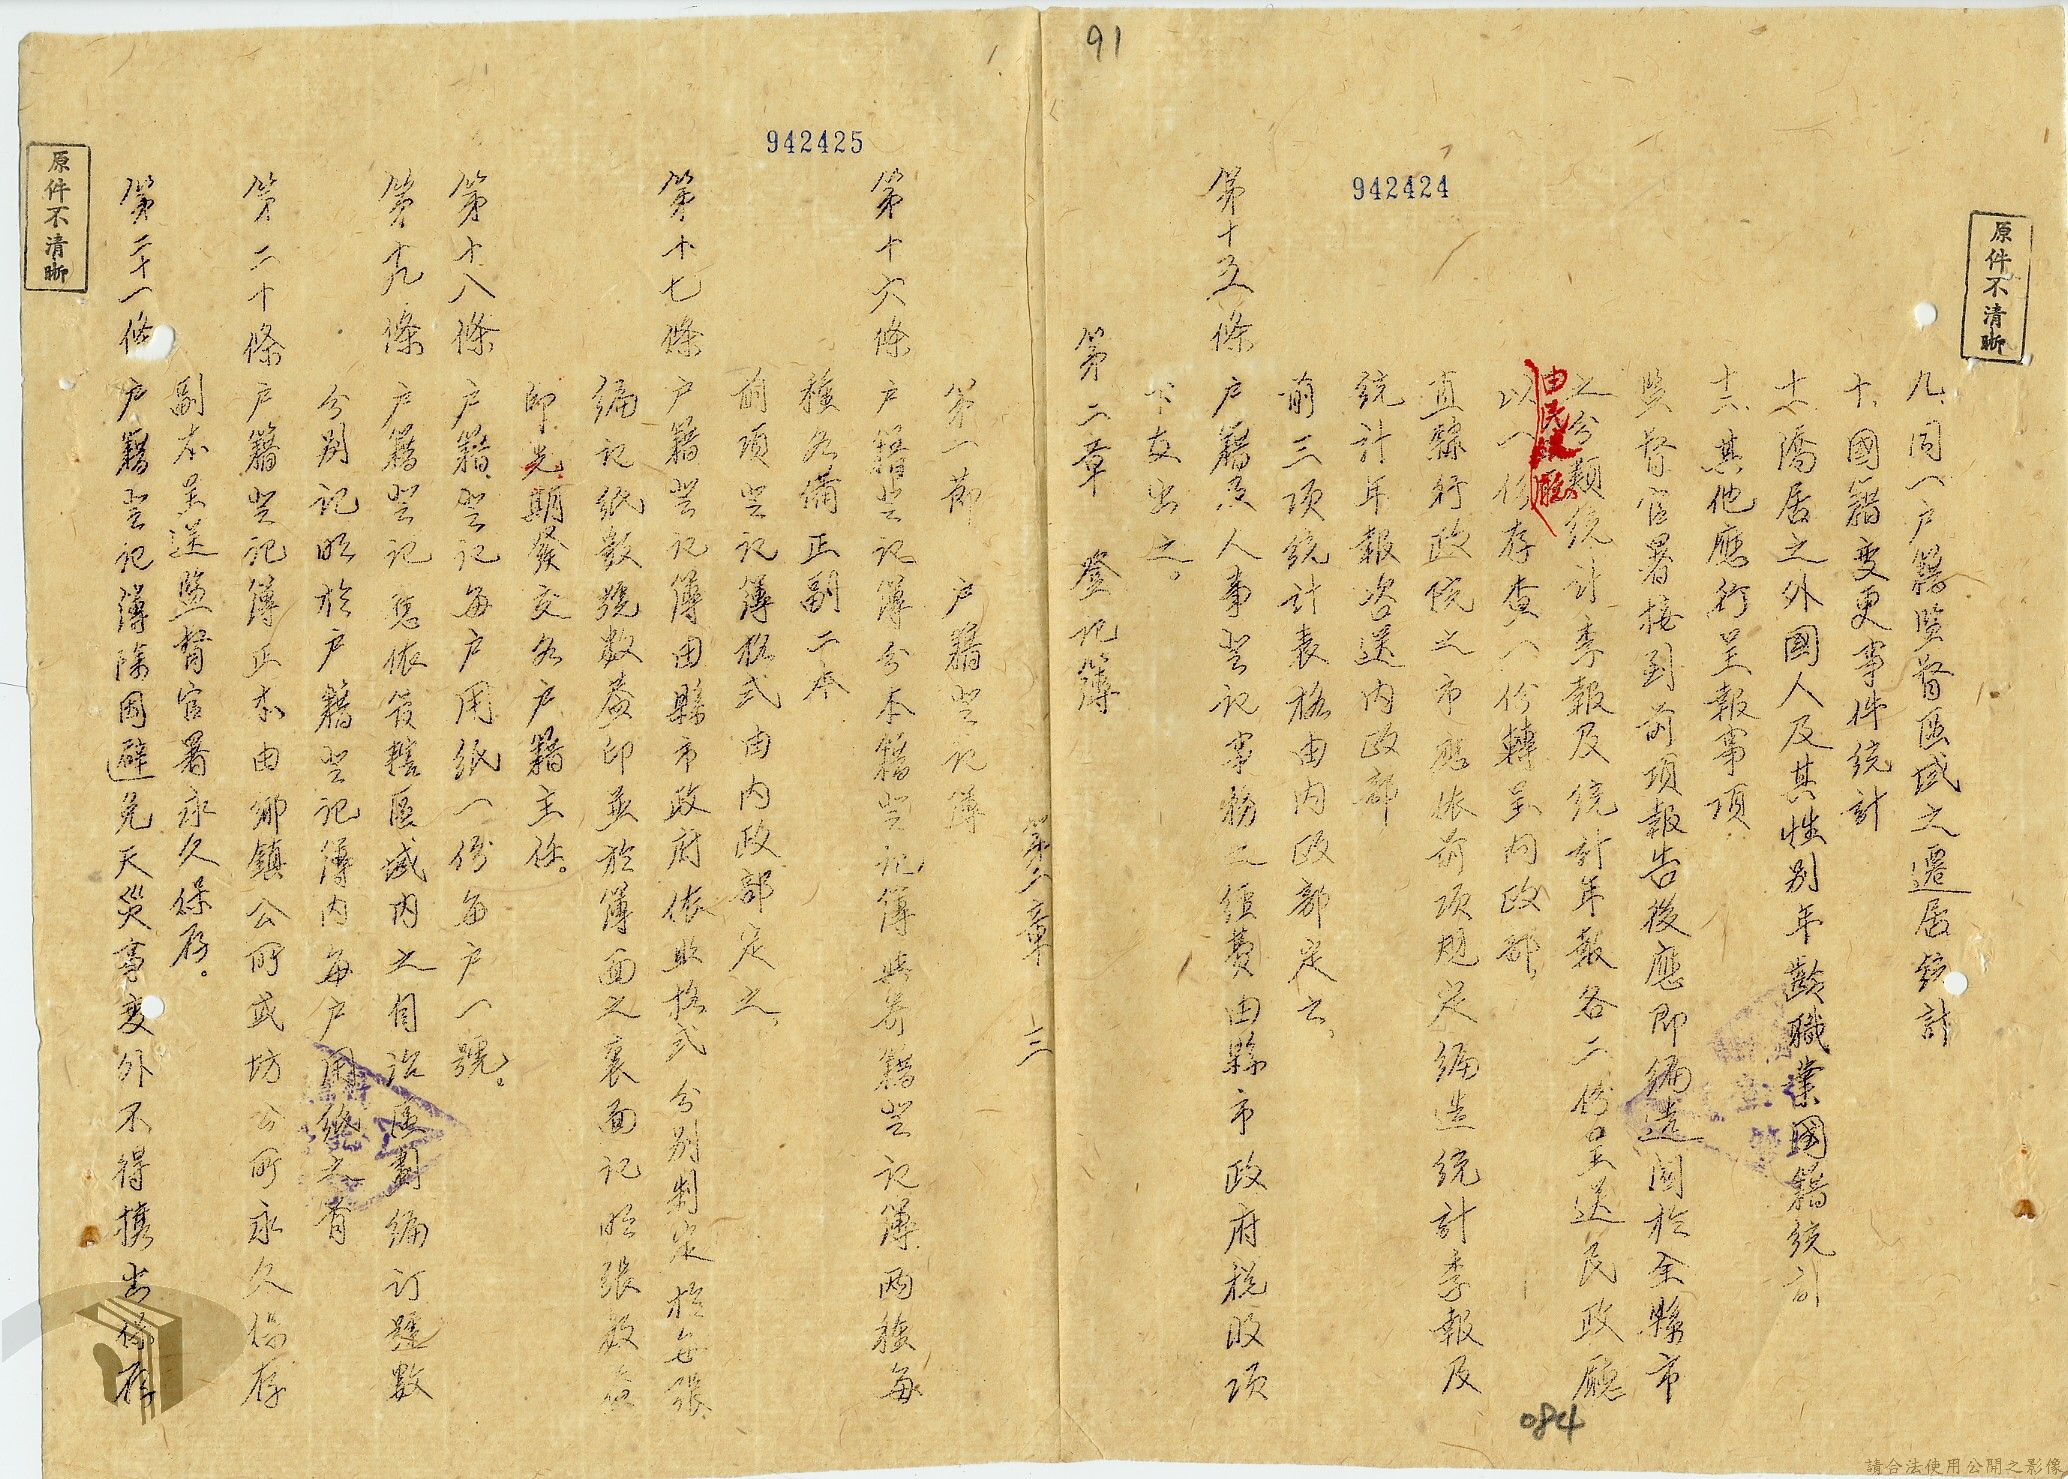 91
942424
原件不清晰
九、同一戶籍監督區域之遷居統計
十、國籍变更事件統計
十一、僑居之外國人及其性別年齡職業國籍統計
十二、其他應行呈報事項
監督官署接到前項報告後應即編造関於全縣市
之分類統計季報及統計年報各二份呈送民政廳
由民政廳
以一份存查一份轉呈內政部、
直隸行政院之市應依前項規定編造統計季報及
統計年報咨送內政部
前三項統計表格由內政部定之、
第十五條 户籍及人事登记事務之經費由縣市政府稅收項
下支出之。
第二章 登記簿
084
第二章 三
942425
原件不清晰
第一節 户籍登记簿
第十六條 户籍登记簿分本籍登记簿與寄籍登记簿兩種每
種各備正副二本
前項登记簿格式由內政部定之、
第十七條 户籍登记簿由縣市政府依照格式分別制定於每張
編记紙數號數蓋印並於簿面之裏面记明張数蓋
印先期發交各户籍主任。
第十八條 户籍登记每户用纸一份每户一號。
第十九條 户籍登记應依管轄區域內之自治區劃編订號數
分别记明於户籍登记簿內每户用紙之首
第二十條 户籍登记簿正本由鄉鎮公所或坊公所永久保存
副本呈送監督官署永久保存。
第二十一條 户籍登记簿除因避免天災事变外不得攜出保存
請合法使用公開之影像